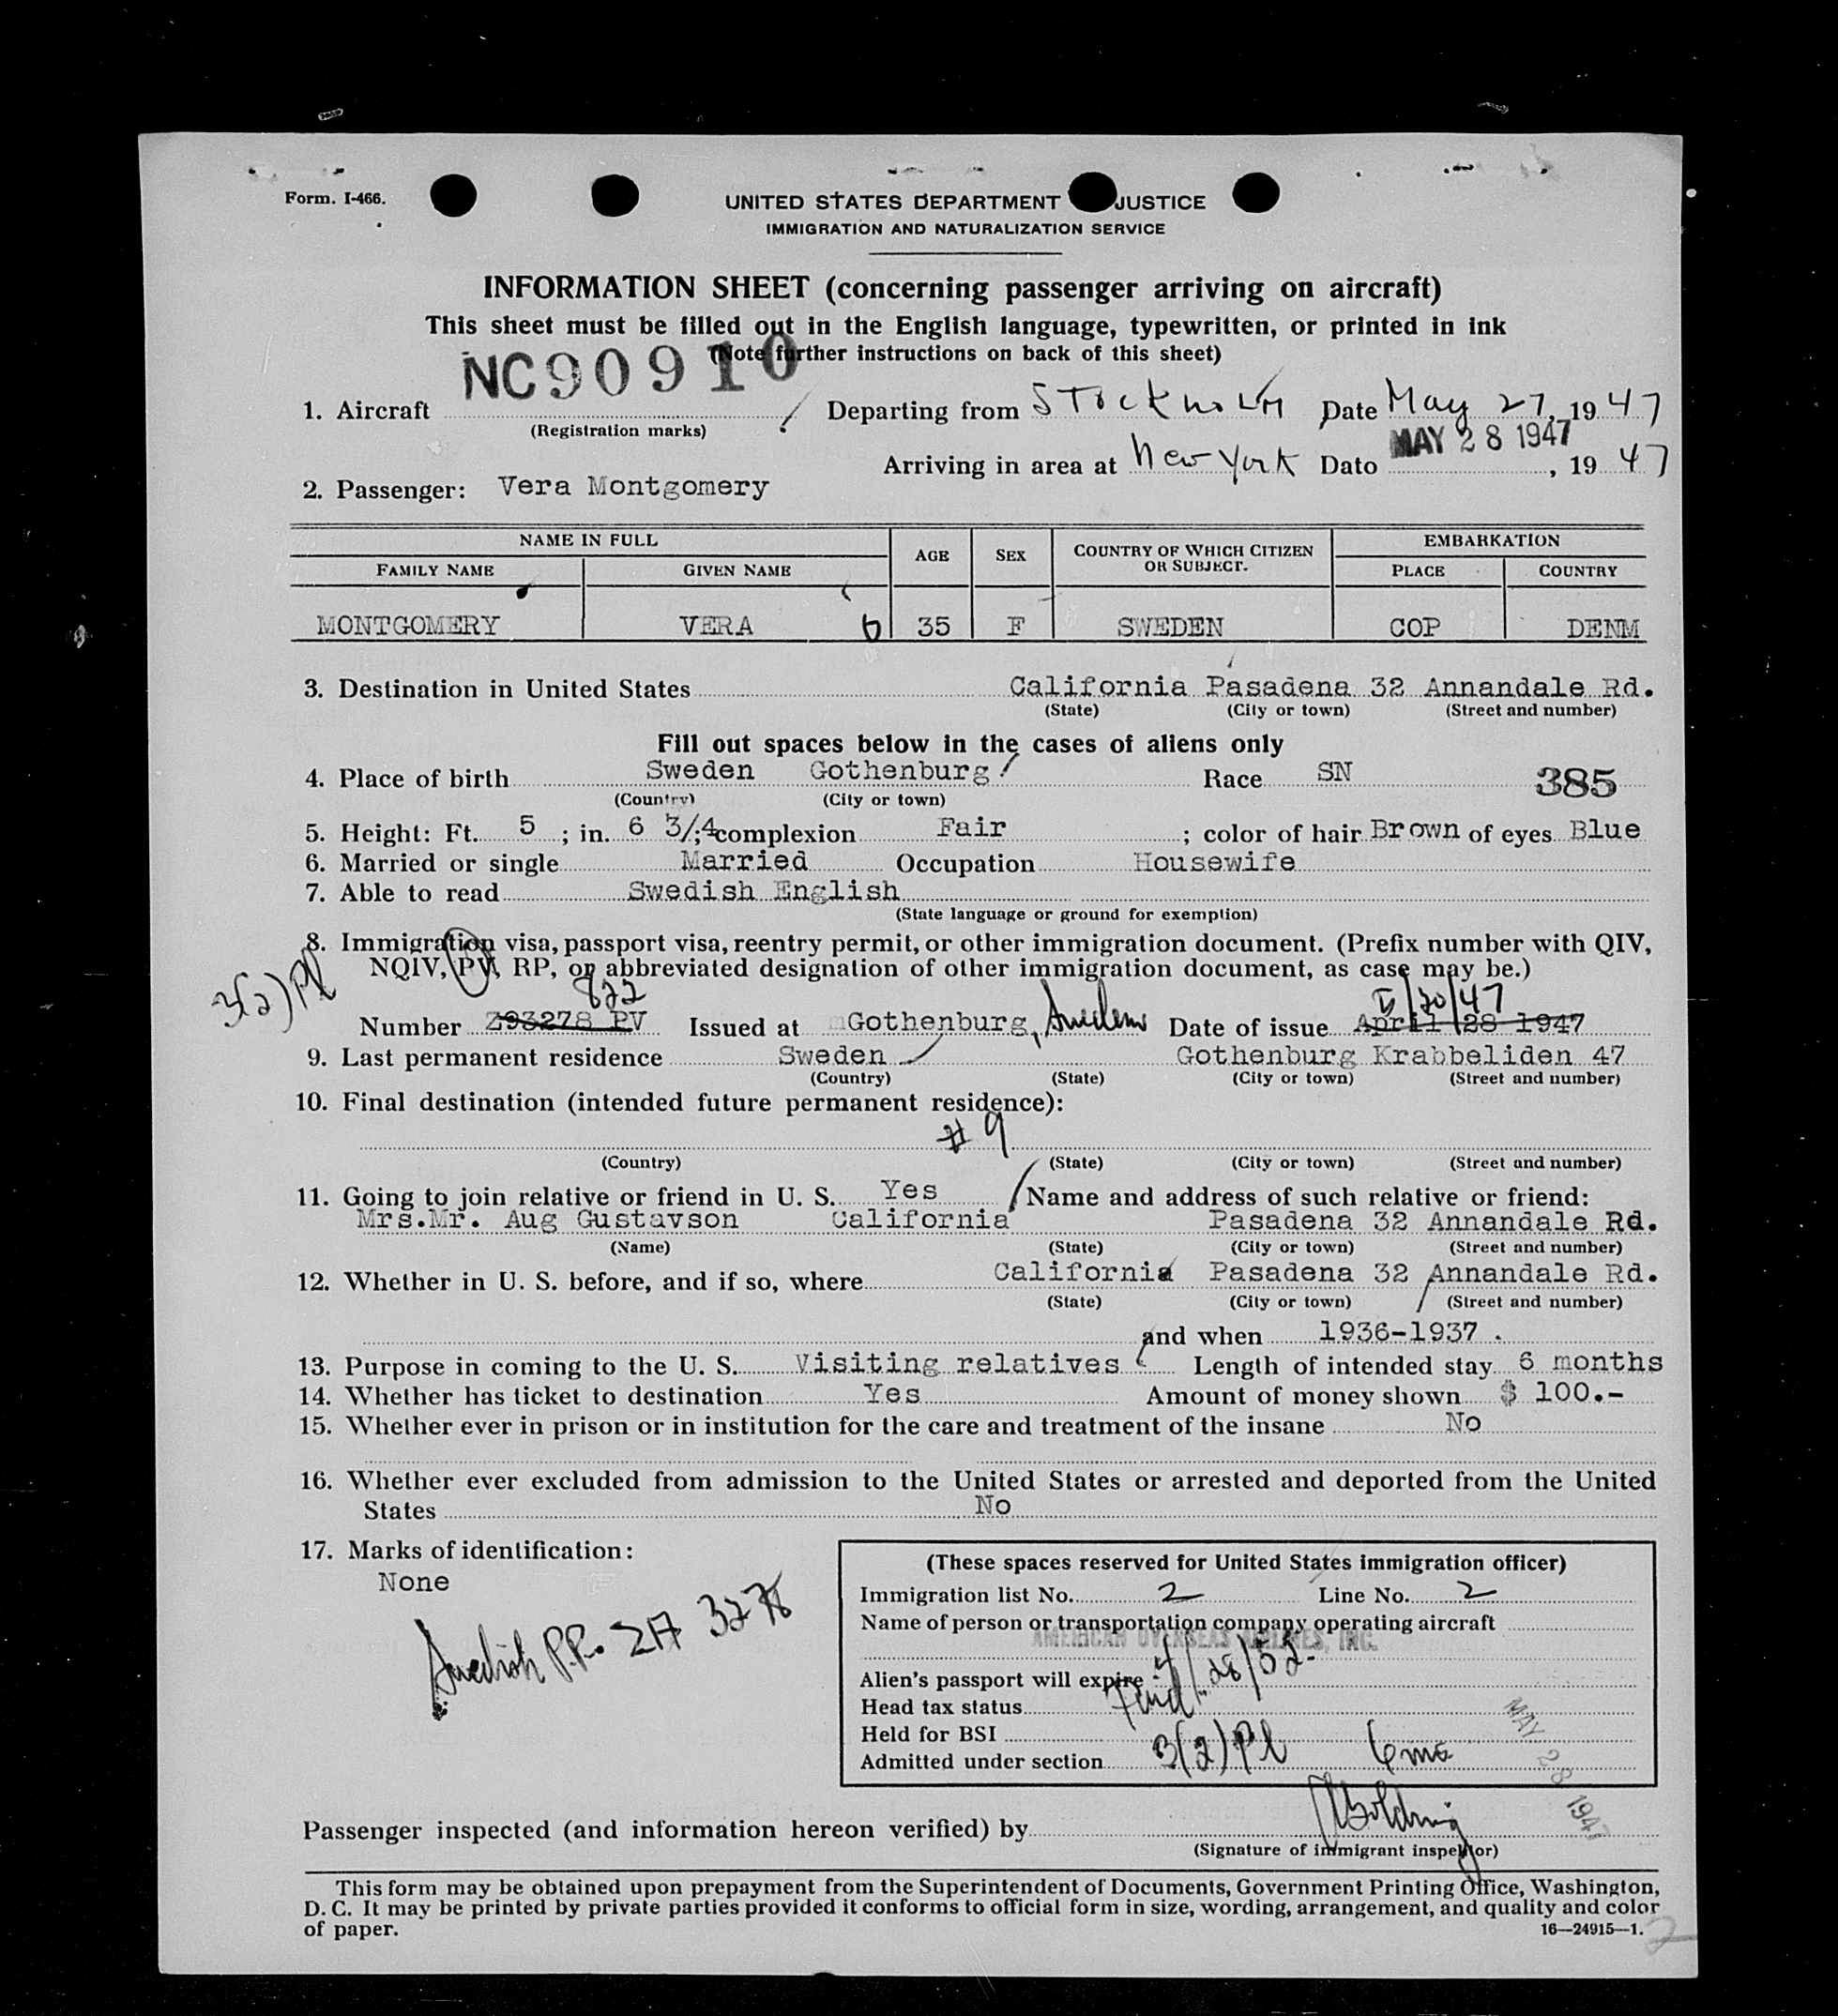 Form. I-466.
UNITED STATES DEPARTMENT JUSTICE
IMMIGRATION AND NATURALIZATION SERVICE
INFORMATION SHEET (concerning passenger arriving on aircraft)
This sheet must be filled out in the English language, typewritten, or printed in ink
(Note further instructions on back of this sheet)
NC90910
1. Aircraft Departing from Stockholm Date May 27, 1947
(Registration marks)
MAY 28 1947
Arriving in area at New York Date , 19 47
2. Passenger: Vera Montgomery
NAME IN FULL AGE SEX COUNTRY OF WHICH CITIZEN OR SUBJECT. EMBARKATION
FAMILY NAME GIVEN NAME PLACE COUNTRY
MONTGOMERY VERA 6 35 F SWEDEN COP DENM
3. Destination in United States California Pasadena 32 Annandale Rd.
(State) (City or town) (Street and number)
Fill out spaces below in the cases of aliens only
4. Place of birth Sweden Gothenburg Race SN 385
(Country) (City or town)
5. Height: Ft. 5 ; in. 6 3/4; complexion Fair ; color of hair Brown of eyes Blue
6. Married or single Married Occupation Housewife
7. Able to read Swedish English
(State language or ground for exemption)
8. Immigration visa, passport visa, reentry permit, or other immigration document. (Prefix number with QIV,
NQIV, PV, RP, or abbreviated designation of other immigration document, as case may be.)
3(2) Pl
822 V/20/47
Number Z93278 PV Issued at Gothenburg, Sweden Date of issue April 28 1947
9. Last permanent residence Sweden Gothenburg Krabbeliden 47
(Country) (State) (City or town) (Street and number)
10. Final destination (intended future permanent residence):
# 9
(Country) (State) (City or town) (Street and number)
11. Going to join relative or friend in U. S. Yes Name and address of such relative or friend:
Mrs.Mr. Aug Gustavson California Pasadena 32 Annandale Rd.
(Name) (State) (City or town) (Street and number)
12. Whether in U. S. before, and if so, where California Pasadena 32 Annandale Rd.
(State) (City or town) (Street and number)
and when 1936-1937 .
13. Purpose in coming to the U. S. Visiting relatives Length of intended stay 6 months
14. Whether has ticket to destination Yes Amount of money shown $ 100.-
15. Whether ever in prison or in institution for the care and treatment of the insane No
16. Whether ever excluded from admission to the United States or arrested and deported from the United
States No
17. Marks of identification:
None
Swedish P.P. 217 3278
(These spaces reserved for United States immigration officer)
Immigration list No. 2 Line No. 2
Name of person or transportation company operating aircraft
AMERICAN OVERSEAS AIRLINES, INC.
Alien's passport will expire 4/28/52
Head tax status
Held for BSI
Admitted under section 3(2) Pl 6 mo
MAY 28 1947
Passenger inspected (and information hereon verified) by
(Signature of immigrant inspector)
This form may be obtained upon prepayment from the Superintendent of Documents, Government Printing Office, Washington,
D. C. It may be printed by private parties provided it conforms to official form in size, wording, arrangement, and quality and color
of paper.
16—24915—1.
2